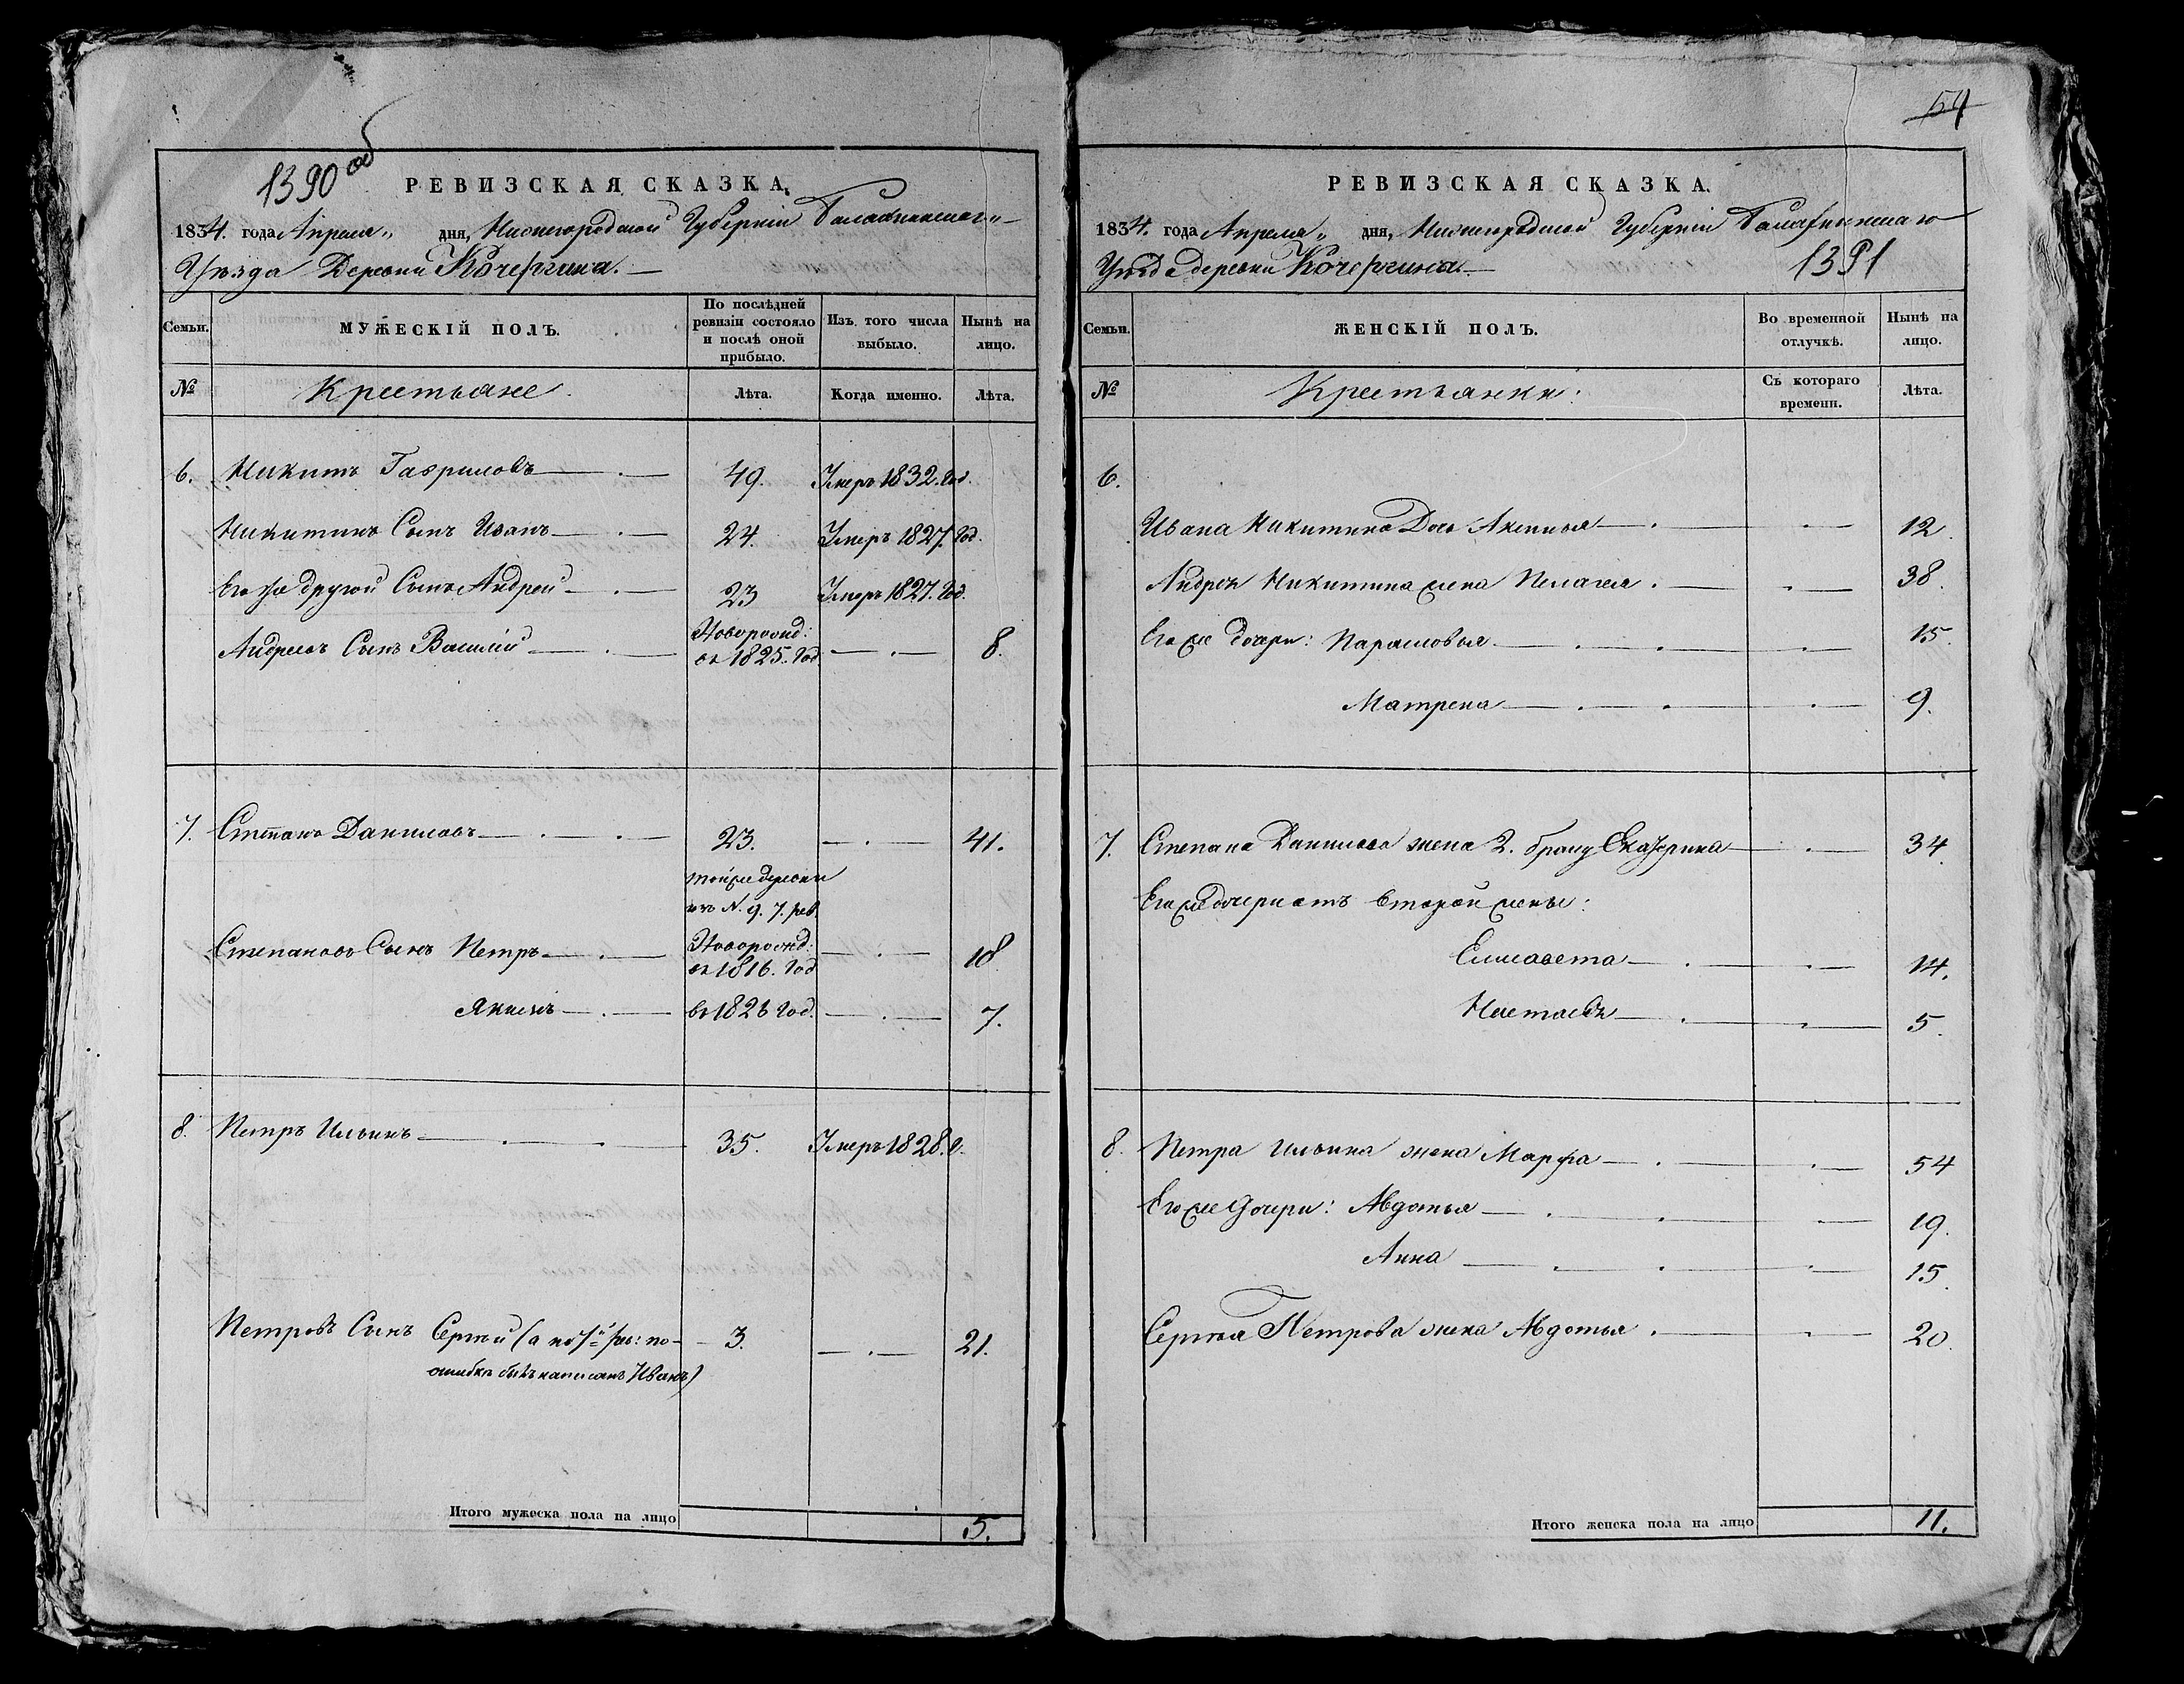 1390 об
РЕВИЗСКАЯ СКАЗКА.
1834. года Апреля „ дня, Нижегородской Губерніи Балахнинскаго
Уѣзда Деревни Кочергина.
Семьи.
МУЖЕСКІЙ ПОЛЪ.
По послѣдней
ревизіи состояло
и послѣ оной
прибыло.
Изъ того числа
выбыло.
Нынѣ на
лицо.
№
Крестьяне.
Лѣта.
Когда именно.
Лѣта.
6. Никитъ Гавриловъ 49. Умеръ 1832. год.
Никитинъ Сынъ Иванъ 24. Умеръ 1827. год.
Его же другой Сынъ Андрей 23 Умеръ 1827. год.
Новорожд:
Андреевъ Сынъ Василій въ 1825. год 8.
7. Степанъ Даниловъ 23. 41.
той же деревни
изъ N. 9. 7. рев.
Степановъ Сынъ Петръ Новорожд: 18
въ 1816. год
Якимъ въ 1826 год. 7.
8. Петръ Ильинъ 35. Умеръ 1828. г.
Петровъ Сынъ Сергѣй (а по 7й рев: по- 3. 21.
ошибкѣ былъ написанъ Иванъ)
Итого мужеска пола на лицо 5.
54
РЕВИЗСКАЯ СКАЗКА.
1834. года Апреля „ дня, Нижегородской Губерніи Балахнинскаго
Уѣзда деревни Кочергина. 1391
Семьи.
ЖЕНСКІЙ ПОЛЪ.
Во временной
отлучкѣ.
Нынѣ на
лицо.
№
Крестьянки:
Съ котораго
времени.
Лѣта.
6.
Ивана Никитина Дочь Аксинья 12.
Андрея Никитина жена Пелагея 38.
Его же дочери: Парасковья 15.
Матрена 9.
7. Степана Данилова жена 2. браку Екатерина 34.
Его же дочери отъ второй жены:
Елисавета 14.
Настасья 5.
8. Петра Ильина жена Марфа 54
Его же дочери: Авдотья 19.
Анна 15.
Сергѣя Петрова жена Авдотья 20.
Итого женска пола на лицо 11.